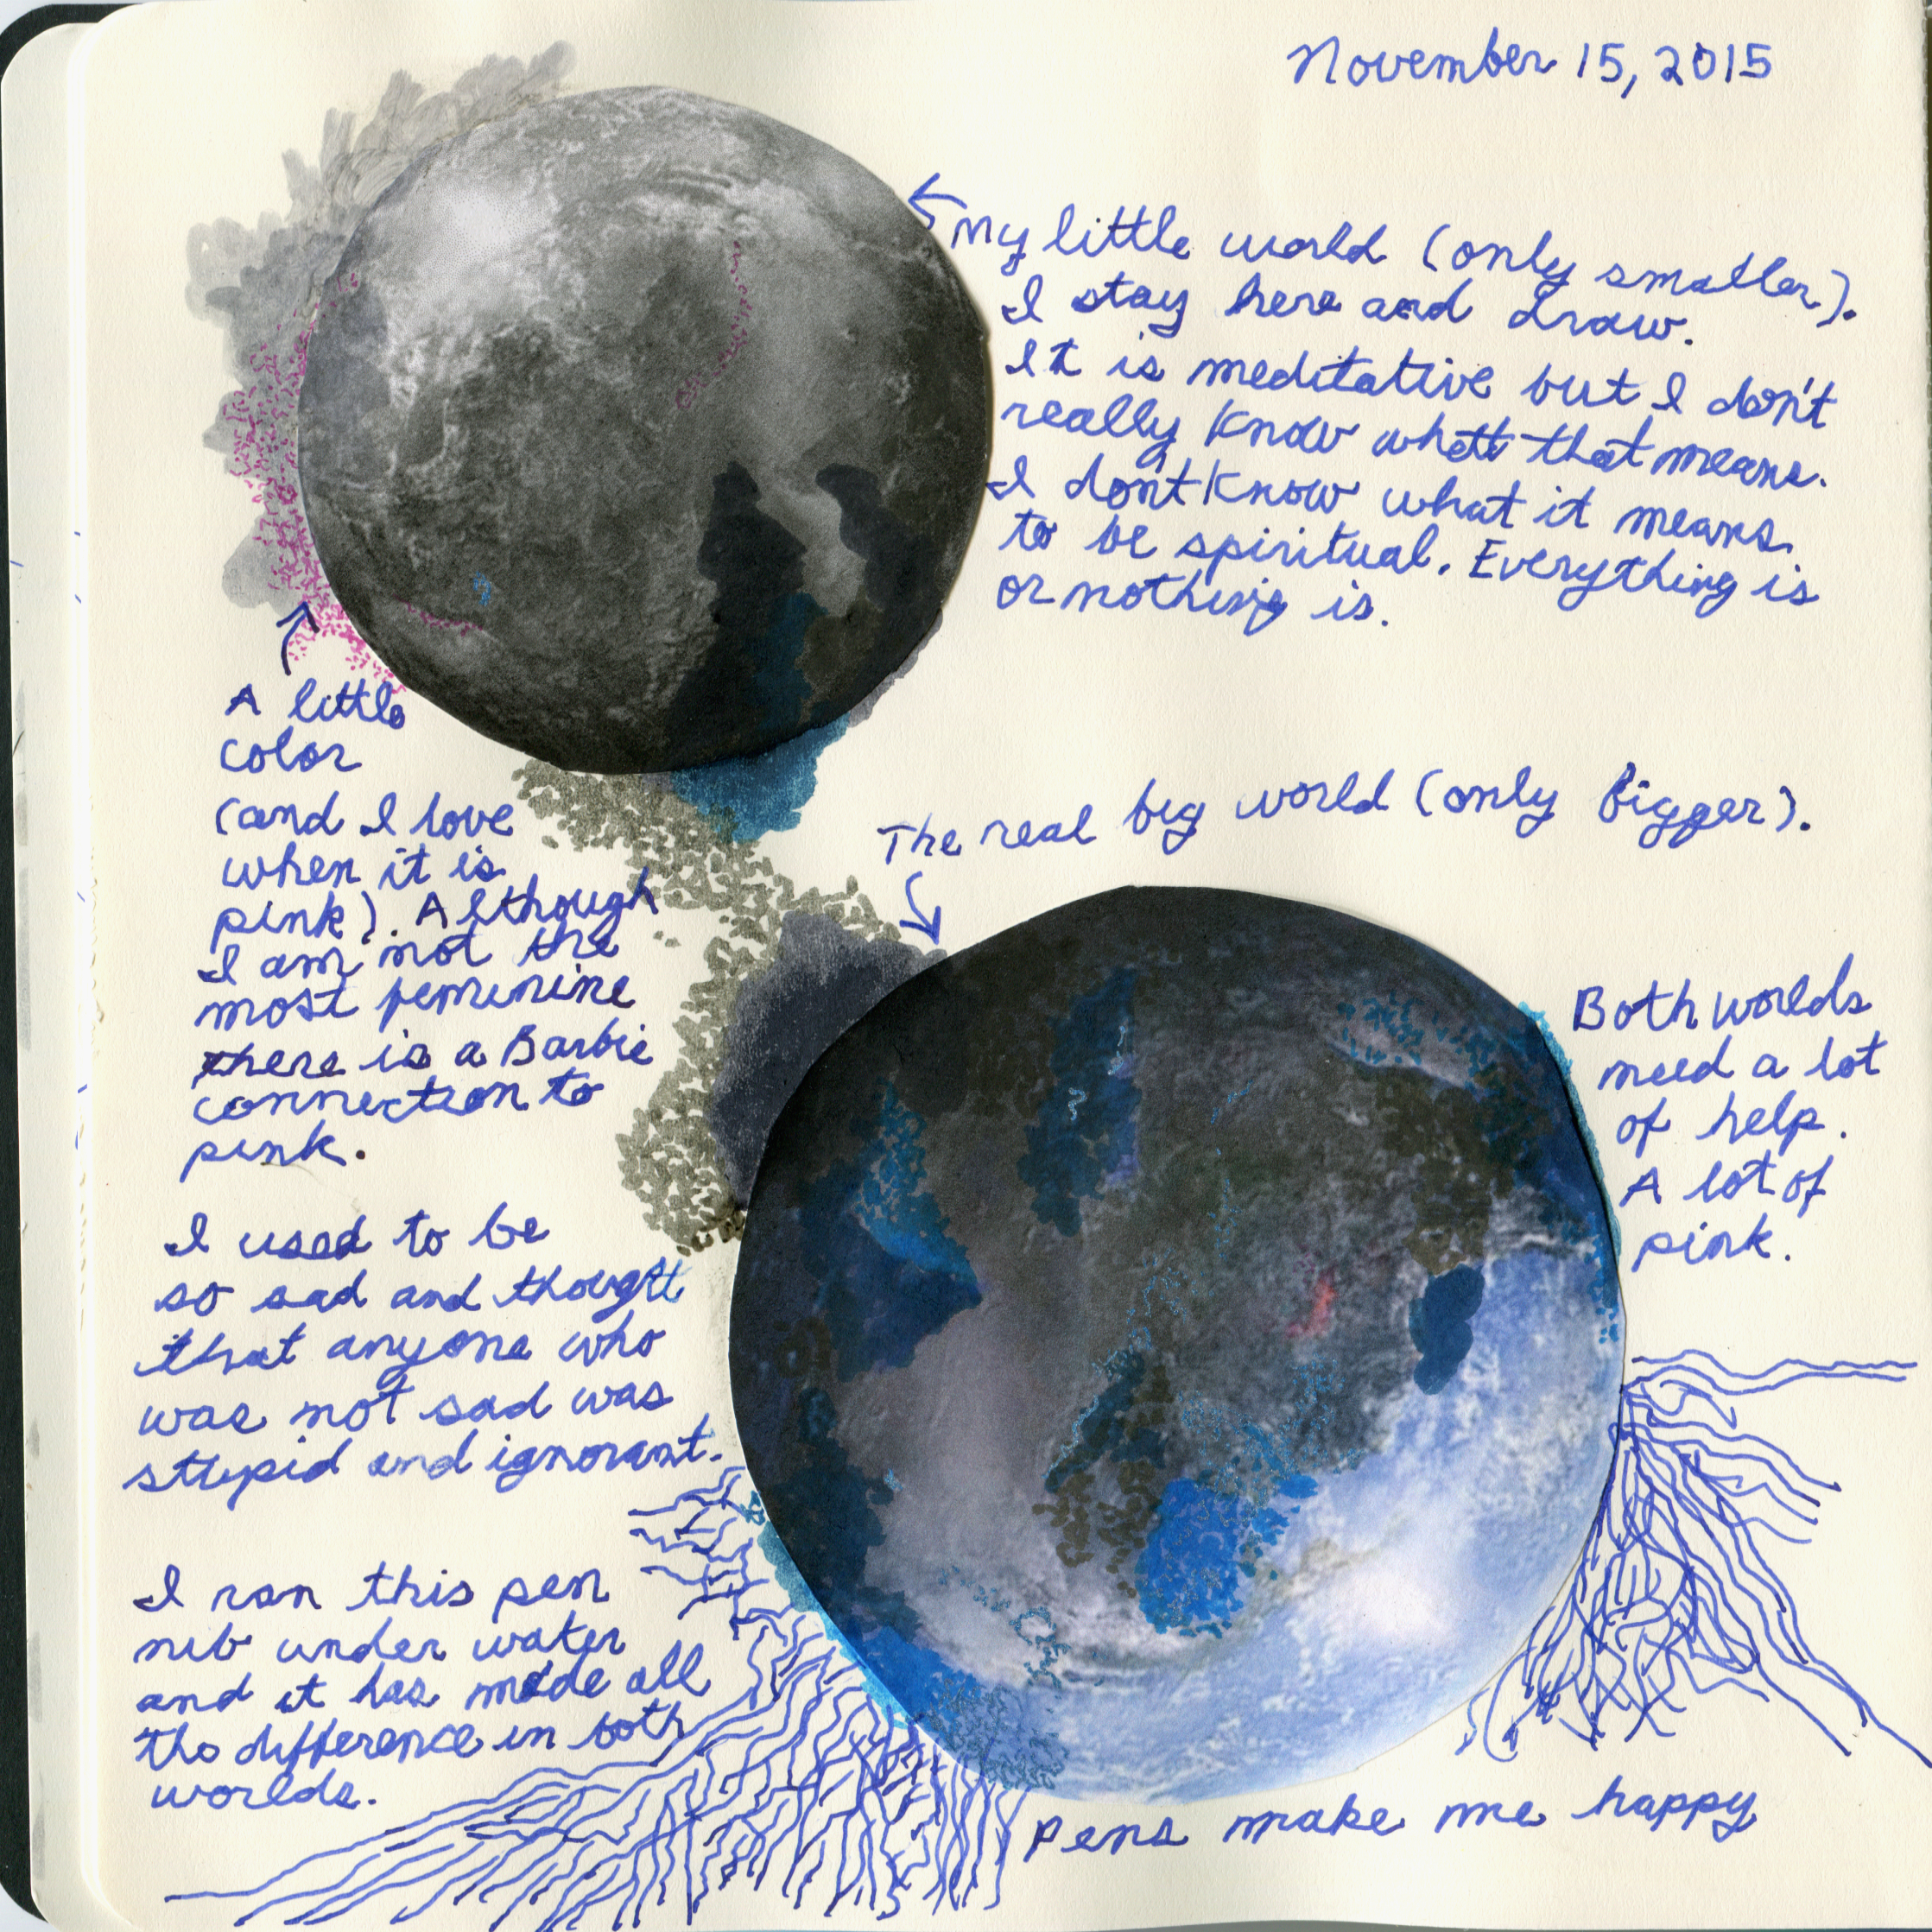 November 15, 2015
My little world (only smaller).
I stay here and draw.
It is meditative but I don't
really know what that means.
I don't know what it means
to be spiritual. Everything is
or nothing is.
A little
color
(and I love
when it is
pink). Although
I am not the
most feminine
there is a Barbie
connection to
pink.
The real big world (only bigger).
Both worlds
need a lot
of help.
A lot of
pink.
I used to be
so sad and thought
that anyone who
was not sad was
stupid and ignorant.
I ran this pen
nib under water
and it has made all
the difference in both
worlds.
Pens make me happy